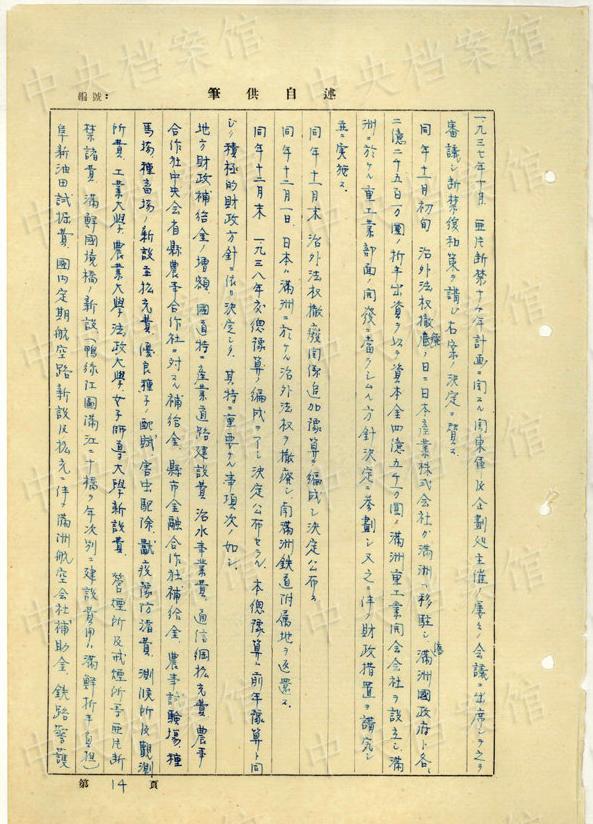 筆供自述
編號：
一九三七年十月 亜片断禁十ケ年計画ニ関スル関東僅及企劃処主催ノ屡々ノ会議ニ出席シテ之ヲ
審議シ断禁後和策ヲ講ジ右案ノ決定ニ賛ス
同年十一月初旬 治外法権撤廃ノ日ニ日本産業株式会社ガ満洲ヘ移駐シ 満洲國政府ト各、
二億二千五百万圓ノ折半出資ヲ以テ資本金四億五千万圓ノ満洲重工業開会社ヲ設立シ満
洲ニ於ケル重工業部面ノ開発ニ當ラシムル方針決定ニ参劃シ又之ニ伴フ財政措置ヲ講究シ
並ニ実施ス
同年十一月末 治外法権撤廃関係追加豫算ヲ編成シ決定公布ス
同年十二月一日 日本ハ満洲ニ於ケル治外法権ヲ撤廃シ南満洲鉄道附属地ヲ返還ス
同年十二月末 一九三八年度總豫算ノ編成ヲ了シ決定公布セラル 本總豫算ハ前年豫算ト同
ジク積極的財政方針ニ依リ決定シタ 其特ニ重要ナル事項次ノ如シ
地方財政補給金ノ増額 國道特ニ産業道路建設費 治水事業費 通信網拡充費 農事
合作社中央会省縣農事合作社ニ対スル補給金 縣市金融合作社補給金 農事試験場種
馬場種畜場ノ新設並拡充費 優良種子ノ配賦 害虫駆除 獣疫豫防諸費 測候所及觀測
所費 工業大學 農業大學 法政大學 女子師道大學新設費 管煙所及戒煙所等亜片断
禁諸費 満鮮國境橋ノ新設（鴨緑江圖満江二十橋ヲ年次別ニ建設費用ハ満鮮折半負担）
阜新油田試掘費 國内定期航空路新設及拡充ニ伴フ満洲航空会社補助金 鉄路警護
第 14 頁
中央档案馆